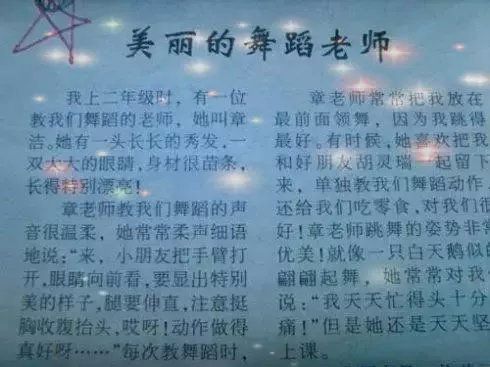 美丽的舞蹈老师
我上二年级时，有一位
教我们舞蹈的老师，她叫章
洁。她有一头长长的秀发，一
双大大的眼睛，身材很苗条，
长得特别漂亮！
章老师教我们舞蹈的声
音很温柔，她常常柔声细语
地说：“来，小朋友把手臂打
开，眼睛向前看，要显出特别
美的样子，腿要伸直，注意挺
胸收腹抬头，哎呀！动作做得
真好呀……”每次教舞蹈时，
章老师常常把我放在
最前面领舞，因为我跳得
最好。有时候，她喜欢把我
和好朋友胡灵瑞一起留下
来，单独教我们舞蹈动作，
还给我们吃零食，对我们很
好！章老师跳舞的姿势非常
优美！就像一只白天鹅似的
翩翩起舞，她常常对我们
说：“我天天忙得头十分
痛！”但是她还是天天坚
上课。